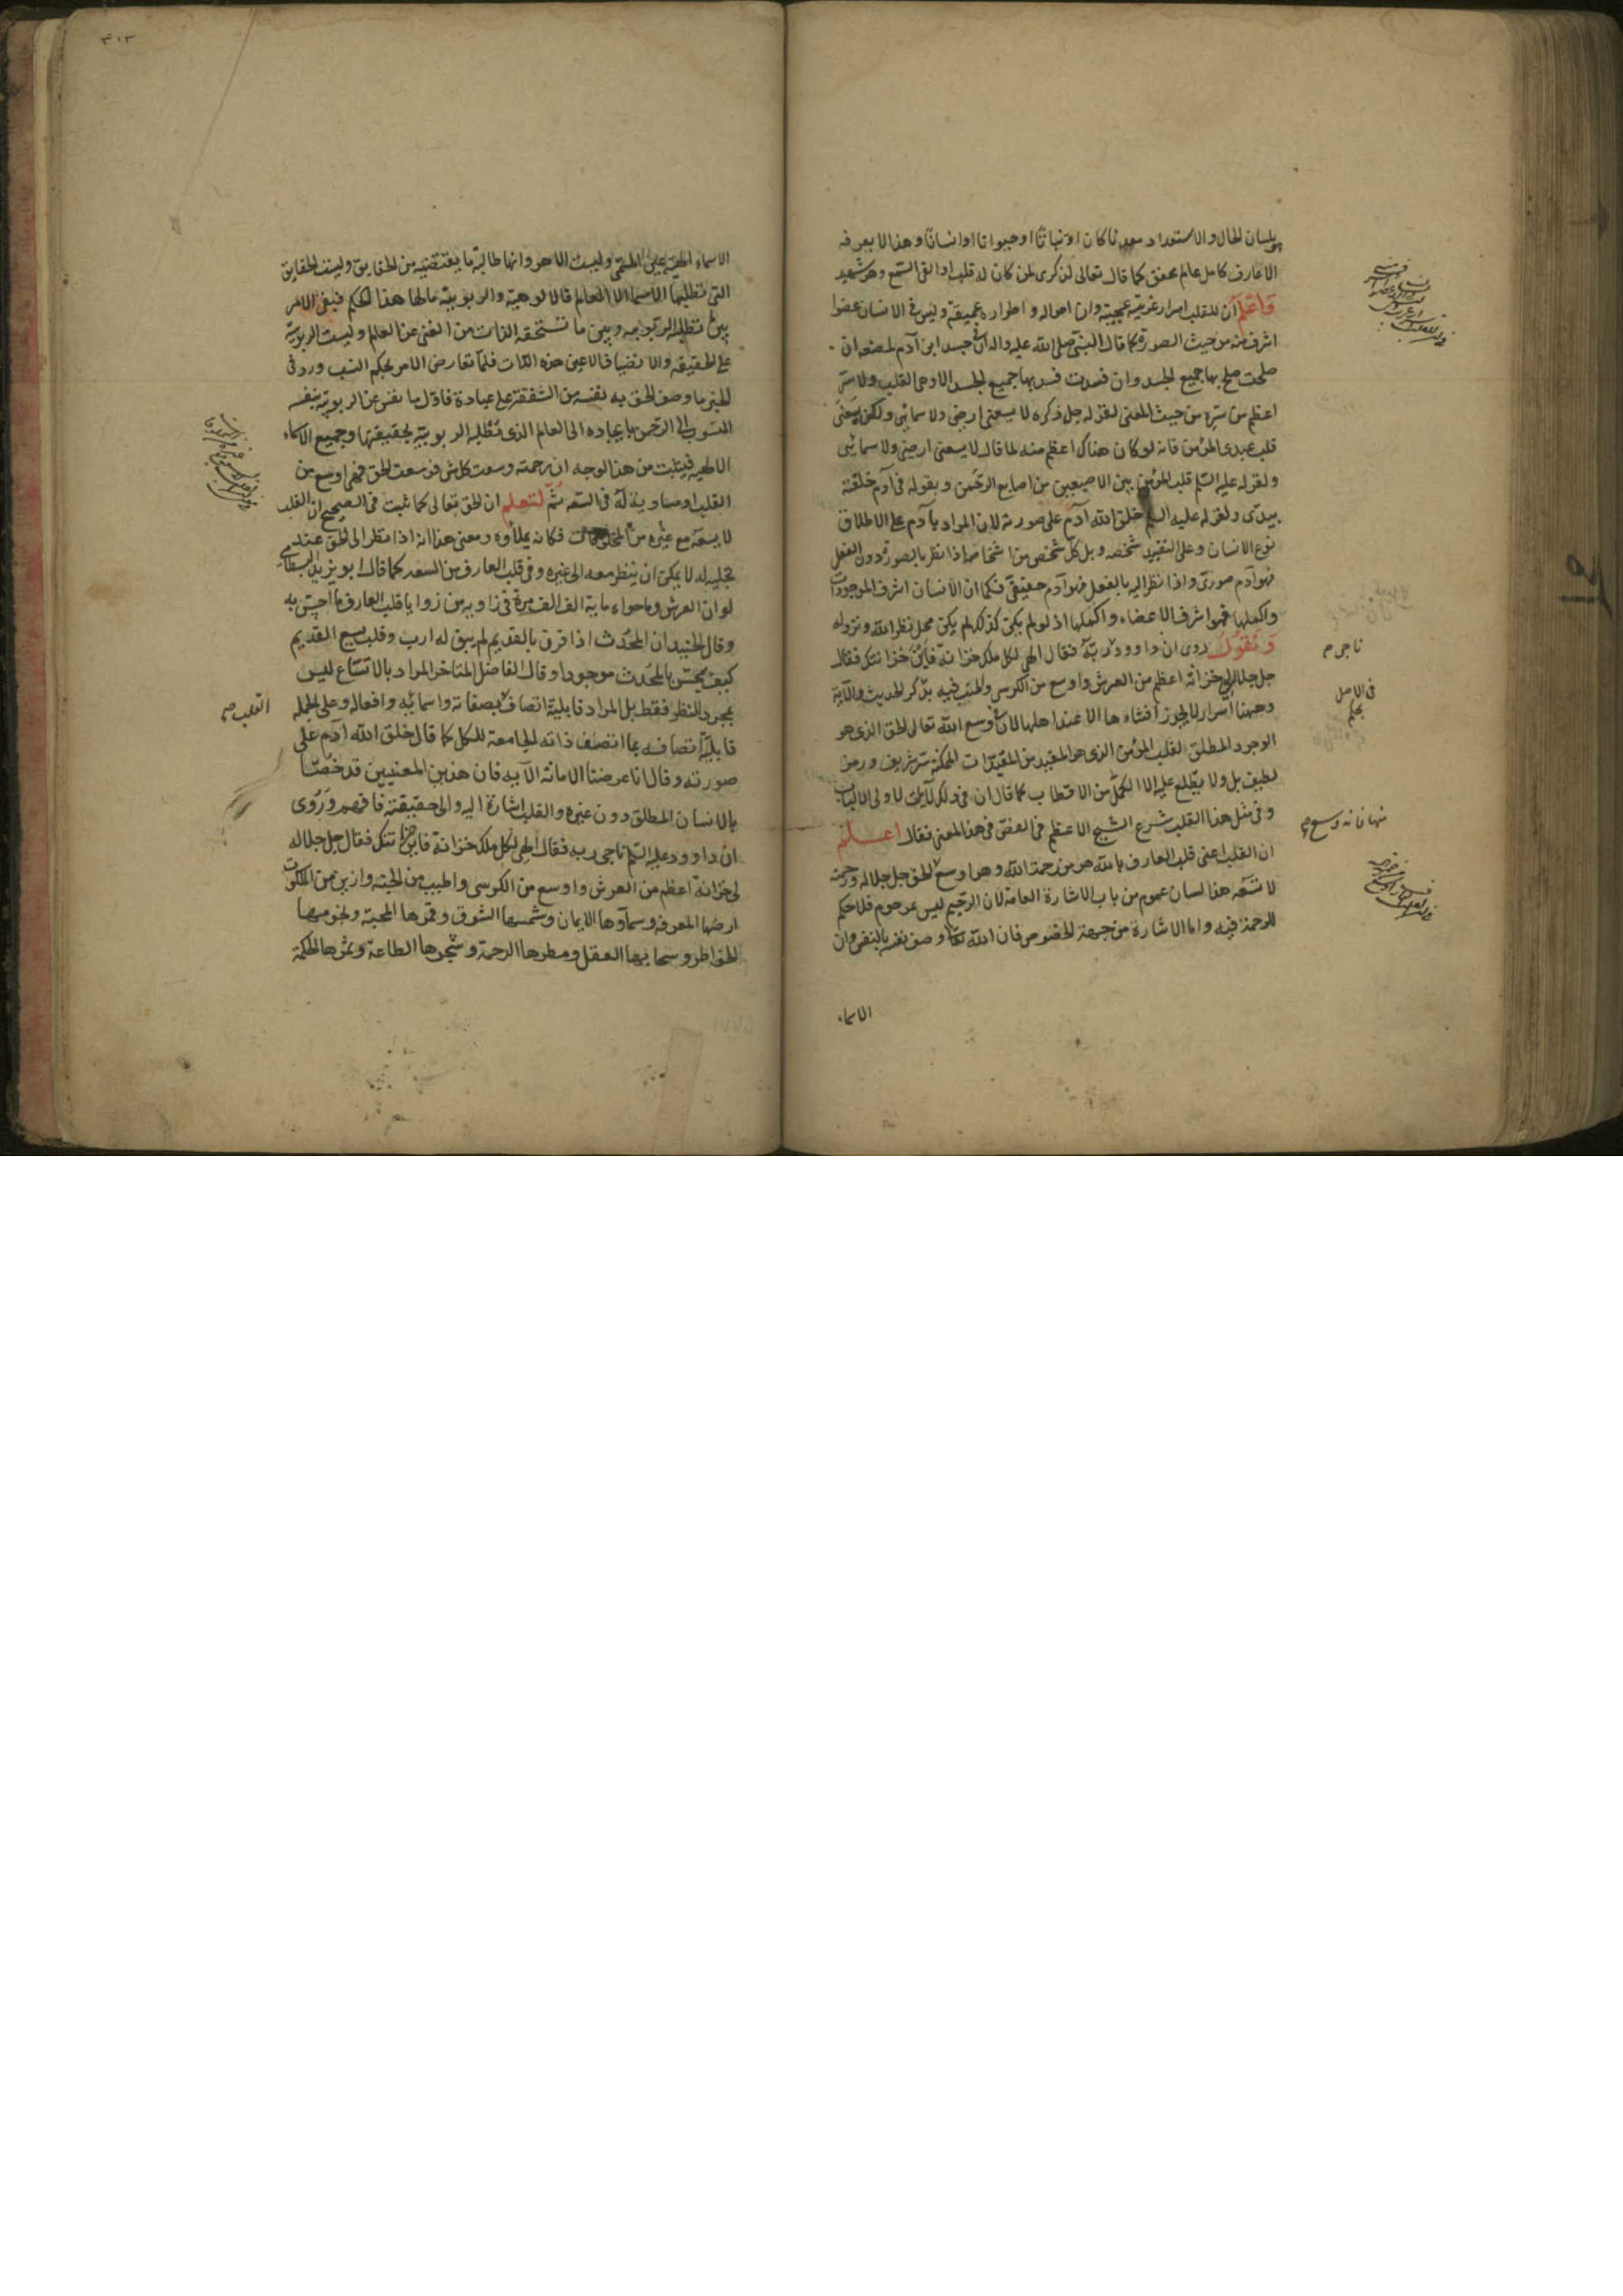 بلسان الحال والاستعداد معدنا كان او نباتا او حيوانا او انسانا وهذا لا يعرفه
الا عارف كامل عالم محقق كما قال تعالى لذكرى لمن كان له قلب او القى السمع وهو شهيد
واعلم ان للقلب اسرار غريبة عجيبة وان احواله و اطواره عميقة وليس في الانسان عضوا
اشرف منه من حيث الصورة كما قال النبي صلى الله عليه واله ان في جسد ابن آدم لمضغة ان
صلحت صلح بها جميع الجسد وان فسدت فسد بها جميع الجسد الا وهى القلب ولا سر
اعظم من سره من حيث المعنى لقوله جل ذكره لا يسعنى ارضى ولا سمائى ولكن يسعنى
قلب عبدى المؤمن فانه لو كان هناك اعظم منه لما قال لا يسعنى ارضى ولا سمائى
ولقوله عليه السلم قلب المؤمن بين الاصبعين من اصابع الرحمن و بقوله في آدم خلقته
بيدى ولقوله عليه السلم خلق الله آدم على صورته لان المراد بآدم على الاطلاق
نوع الانسان وعلى التقييد شخصه وبل كل شخص من اشخاصه اذا نظر بالصورة دون الفعل
فهو آدم صورى واذا نظر اليه بالفعل فهو آدم حقيقى فكما ان الانسان اشرف الموجودات
واكملها فهو اشرف الاعضاء واكملها اذ لو لم يكن كذلك لم يكن محل نظر الله ونزوله
ونقول روى ان داوود ربه فقال الهى لكل ملك خزانة فاين خزانتك فقال
جل جلاله لى خزانه اعظم من العرش واوسع من الكرسى والجنة فيه بذكر الحديث والآية
وههنا اسرار لا يجوز افشاءها الا عند اهلها لان في وسع الله تعالى الحق الذى هو
الوجود المطلق لقلب المؤمن الذى هو المقيد من المقيدات الممكنة سر شريف ورمز
لطيف بل ولا يطلع عليه الا الكمل من الاقطاب كما قال ان فى ذلك لآيات لاولى الالباب
وفى مثل هذا القلب شرع الشيخ الاعظم فى الفص فى هذا المعنى فقال اعلم
ان القلب اعنى قلب العارف بالله هو من رحمة الله وهو اوسع منها فانه وسع الحق جل جلاله ورحمته
لا تسعه هذا لسان عموم من باب الاشارة العامة لان الرحيم ليس بمرحوم فلا حكم
للرحمة فيه واما الاشارة من جهة الخصوص فان الله تعالى وصف نفسه بالنفس وان
الاسماء
ناجى م
فى الاصل
بحكم
منها فانه وسع صح
٣٠٣
الاسماء الالهية عين المسمى وليست الا هو وانها طالبة ما يقتضيه من الحقايق وليست الحقايق
التى تطلبها الاسما الا العالم فالالوهية والربوبية مالها هذا الحكم فيبقى الامر
بين تطلبه الربوبيه وبين ما تستحقه الذات من الغنى عن العالم وليست الربوبية
على الحقيقة والاتصاف الا عين هذه الذات فلما تعارض الامر بحكم النسب ورد فى
الخبر ما وصف الحق به نفسه من الشفقة على عباده فاول ما نفس عن الربوبية بنفسه
المنسوب الى الرحمن بايجاده الى العالم الذى تطلبه الربوبية بحقيقتها وجميع الاسماء
الالهيه فيثبت من هذا الوجه ان رحمته وسعت كل شئ فوسعت الحق فهى اوسع من
القلب او مساوية له فى السعه ثم لتعلم ان الحق تعالى كما ثبت فى الصحيح ان القلب
لا يسعه مع غيره من المخلوقات فكانه يملأوه ومعنى هذا انه اذا نظر الى الحق عند
تجليه له لا يمكن ان ينظر معه الى غيره وفى قلب العارف من السعه كما قال ابو يزيد البسطامى
لو ان العرش وما حواه ماية الف الف مرة فى زاويه من زوايا قلب العارف ما احس به
وقال الجنيد ان المحدث اذا قرن بالقديم لم يبق له اثر وقلب يسع القديم
كيف يحس بالمحدث موجودا وقال الفاضل المتاخر المراد بالاتساع ليس
بمجرد النظر فقط بل المراد قابلية اتصافه بصفاته واسمائه وافعاله وعلى الجمله
قابلية اتصافه بما اتصف ذاته الجامعة للكل كما قال خلق الله آدم على
صورته وقال انا عرضنا الامانة الآيه فان هذين المعنيين قد خصتا
بالانسان المطلق دون غيره والقلب اشارة اليه والى حقيقته فافهم وروى
ان داوود عليه السلم ناجى ربه فقال الهى لكل ملك خزانة فاين خزانتك فقال جل جلاله
لى خزانة اعظم من العرش واوسع من الكرسى واطيب من الجنه وازين من الملكوت
ارضها المعرفه وسماؤها الايمان وشمسها الشوق وقمرها المحبة ونجومها
الخواطر وسحابها العقل ومطرها الرحمة وشجرها الطاعة وثمرها الحكمة
القلب صح